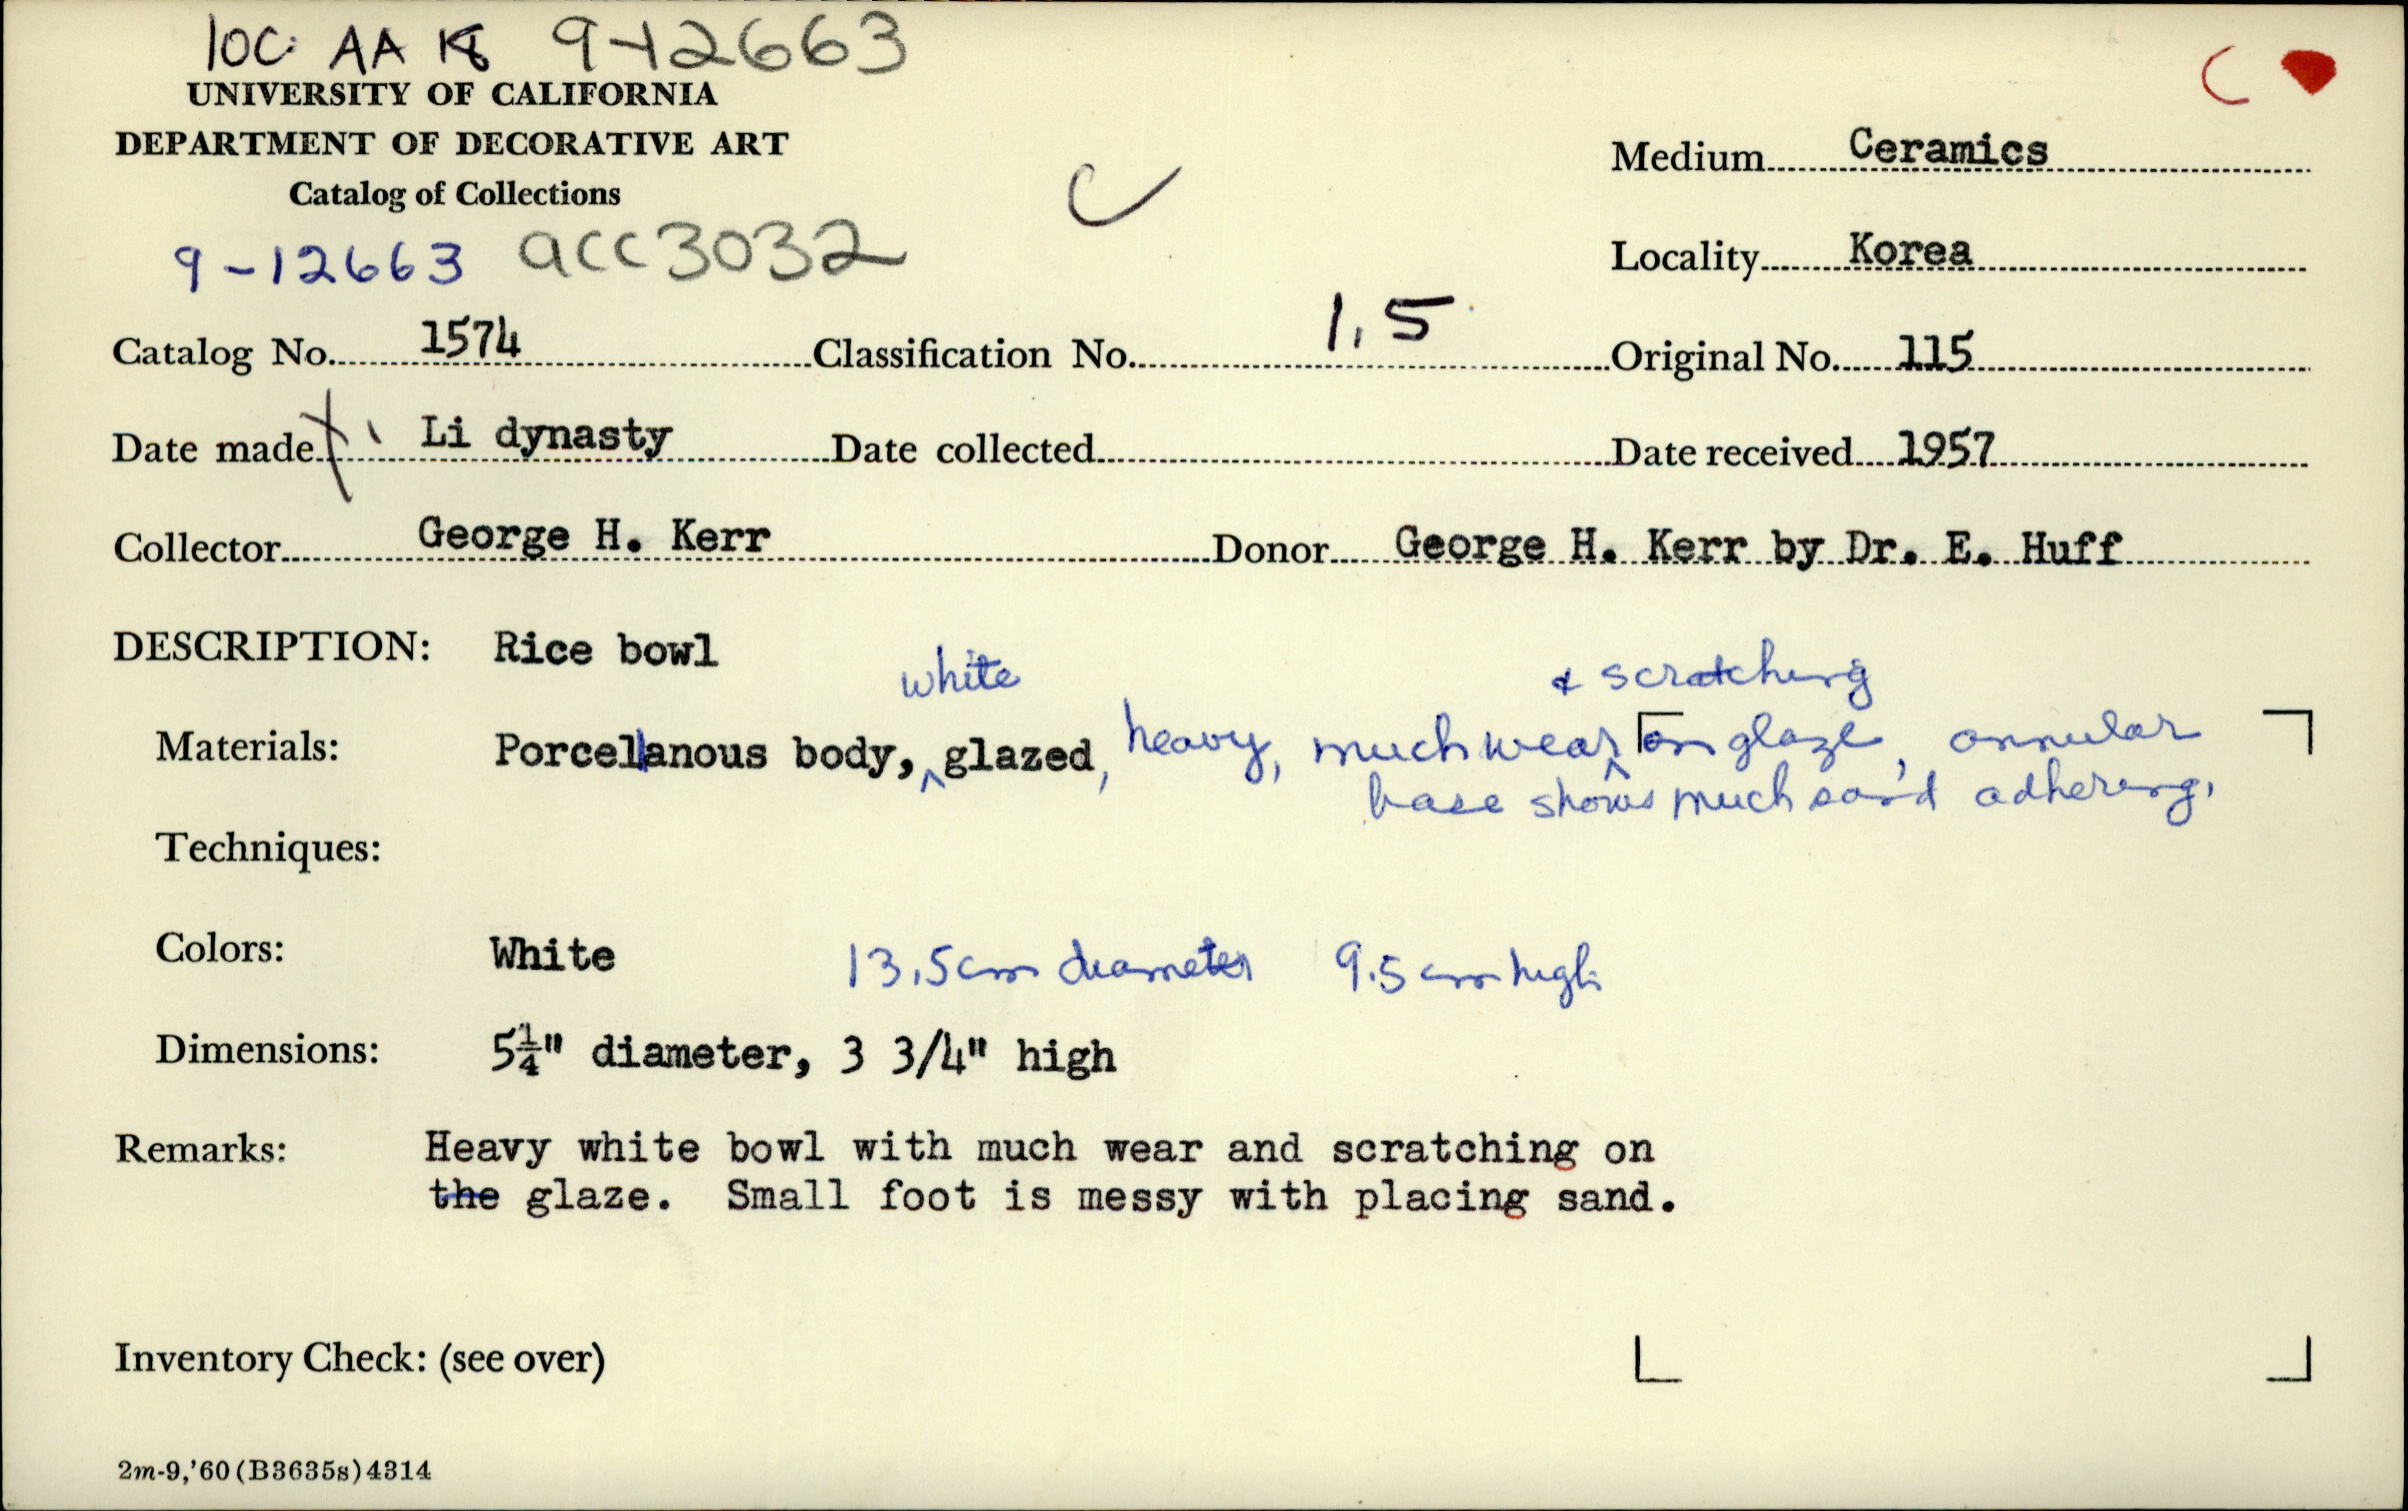 10C AA K8 9-12663
UNIVERSITY OF CALIFORNIA
DEPARTMENT OF DECORATIVE ART
Catalog of Collections
9-12663 acc 3032
C
C
Medium Ceramics
Locality Korea
Catalog No. 1574 Classification No. 1.5 Original No. 115
Date made Li dynasty Date collected Date received 1957
Collector George H. Kerr Donor George H. Kerr by Dr. E. Huff
DESCRIPTION: Rice bowl
white & scratching
Materials: Porcelanous body, glazed, heavy, much wear on glaze, annular
base shows much sand adhering.
Techniques:
Colors: White 13.5cm diameter 9.5 cm high
Dimensions: 5¼" diameter, 3 3/4" high
Remarks: Heavy white bowl with much wear and scratching on
the glaze. Small foot is messy with placing sand.
Inventory Check: (see over)
2m-9,'60(B3635s)4314